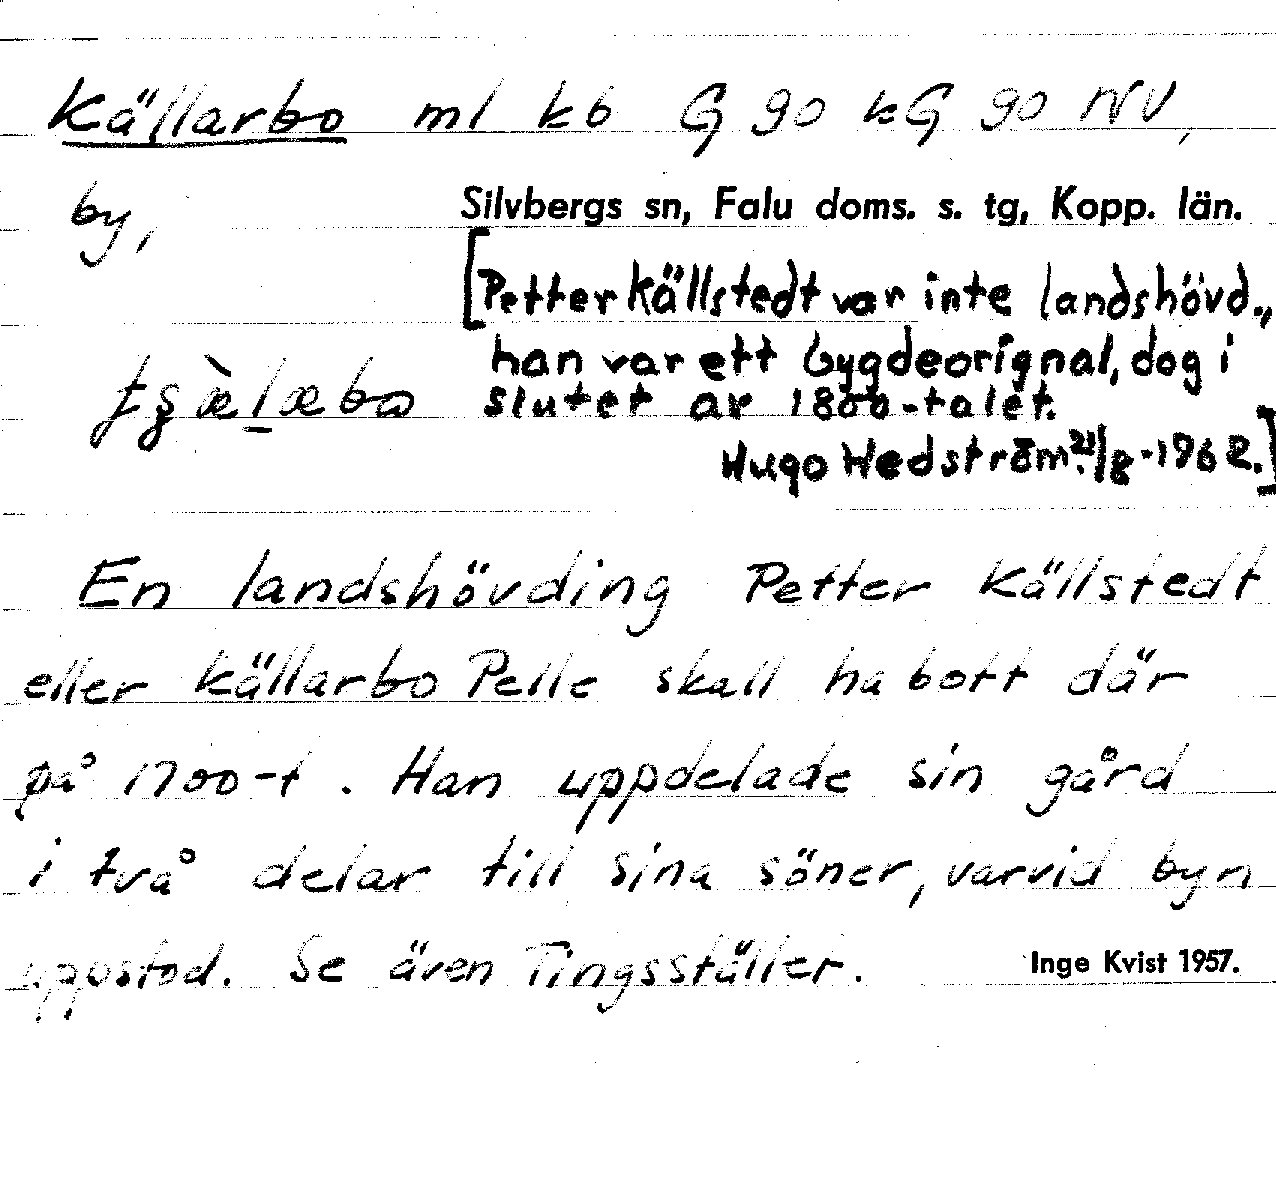 Källarbo ml kb G 90 kG 90 NV,
by,
Silvbergs sn, Falu doms. s. tg, Kopp. län.
[Petter Källstedt var inte landshövd.,
han var ett bygdeorignal, dog i
slutet av 1800-talet.
Hugo Hedström. 21/8-1962.]
En landshövding Petter Källstedt
eller Källarbo Pelle skall ha bott där
på 1700-t. Han uppdelade sin gård
i två delar till sina söner, varvid byn
uppstod. Se även Tingsställer.
Inge Kvist 1957.